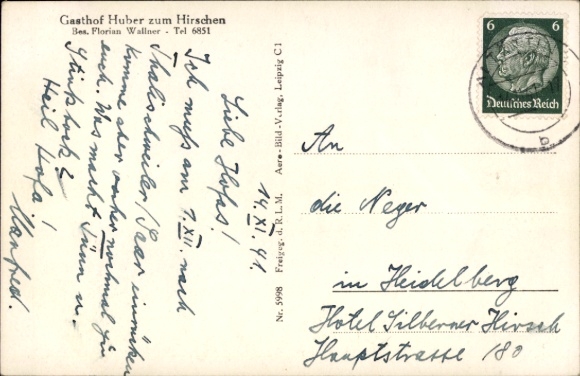 Gasthof Huber zum Hirschen
Bes. Florian Wallner - Tel 6851
14. XI. 41.
Liebe Hofas!
Ich muß am 7. XII. nach
Thaleischweiler / Saar einrücken
komme aber vorher nochmal zu
euch. Was macht u.
Heil Hofa!
Manfred.
Nr. 5998 Freigeg. d. R.L.M. Aero-Bild-Verlag, Leipzig C1
6 6
Deutsches Reich
b
An
die Neger
in Heidelberg
Hotel Silberner Hirsch
Hauptstrasse 180